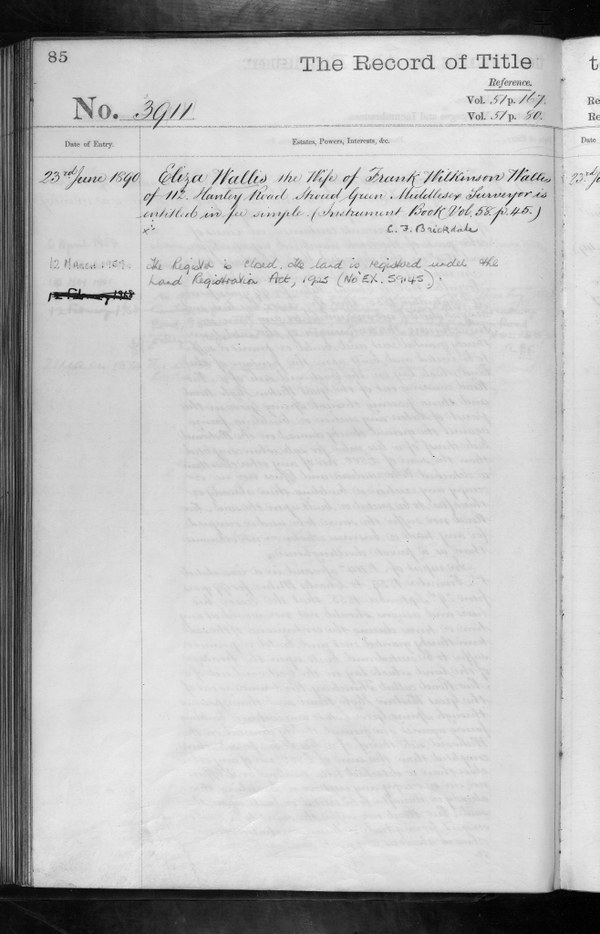 85
The Record of Title
Reference.
No. 3911
Vol. 51 p. 167.
Vol. 51 p. 80.
Date of Entry.
Estates, Powers, Interests, &c.
23rd June 1890
Eliza Wallis the Wife of Frank Wilkinson Wallis
of 112 Hanley Road Stroud Green Middlesex Surveyor is
entitled in fee simple. (Instrument Book Vol. 58. p. 45.)
C. F. Brickdale
12 March
The Register is closed. The land is registered under the
Land Registration Act, 1925 (No EX. 59145).
t
Re
Re
Date
23rd J